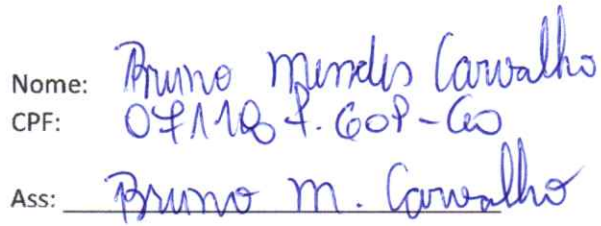 Nome: Bruno Mendes Carvalho
CPF:
Ass: Bruno M. Carvalho